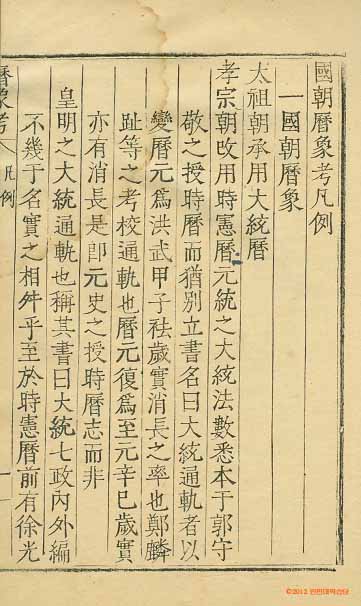 國朝曆象考凡例
一國朝曆象
太祖朝承用大統曆
孝宗朝改用時憲曆元統之大統法數悉本于郭守
敬之授時曆而猶別立書名曰大統通軌者以
變曆元爲洪武甲子祛歲實消長之率也鄭麟
趾等之考校通軌也曆元復爲至元辛巳歲實
亦有消長是卽元史之授時曆志而非
皇明之大統通軌也稱其書曰大統七政內外編
不幾于名實之相舛乎至於時憲曆前有徐光
曆象考 凡例 一
©2012